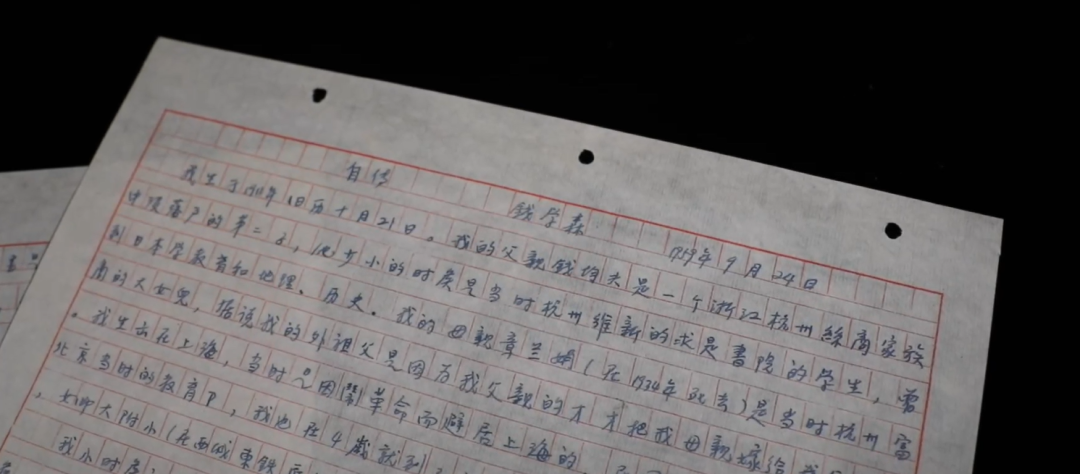 自传
钱学森
1959年9月24日
我生于1911年旧历十月21日。我的父亲钱均夫是一个浙江杭州絲商家族
中没落户的第二子，他少小的时候是当时杭州維新的求是書院的学生，曾
到日本学教育和地理、历史。我的母親章兰娟（在1934年死去）是当时杭州富
商的大女兒，据说我的外祖父是因为我父親的才才把我母親嫁给
。我生在上海，当时是因闹革命而避居上海的
北京当时的教育P，我也在4歲就到
，女师大附小（在西城東鉄
我小时